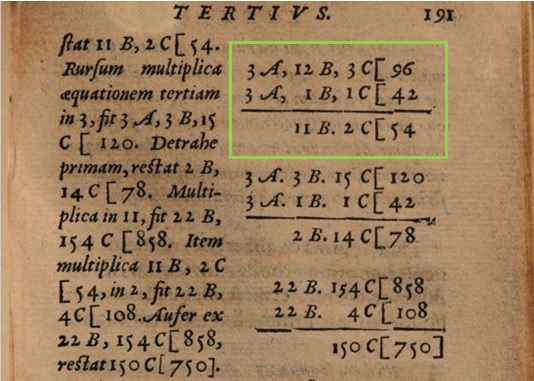 TERTIVS. 191
ſtat 11 B, 2 C[ 54.
Rurſum multiplica
æquationem tertiam
in 3, fit 3 A, 3 B, 15
C [ 120. Detrahe
primam, reſtat 2 B,
14 C [ 78. Multi-
plica in 11, fit 22 B,
154 C [ 858. Item
multiplica 11 B, 2 C
[ 54, in 2, fit 22 B,
4C [ 108. Aufer ex
22 B, 154 C [ 858,
reſtat 150 C [ 750].
3 A, 12 B, 3 C[ 96
3 A, 1 B, 1 C[ 42
11 B. 2 C[ 54
3 A. 3 B. 15 C[ 120
3 A. 1 B. 1 C[ 42
2 B. 14 C[ 78
22 B. 154 C[ 858
22 B. 4 C[ 108
150 C[ 750]